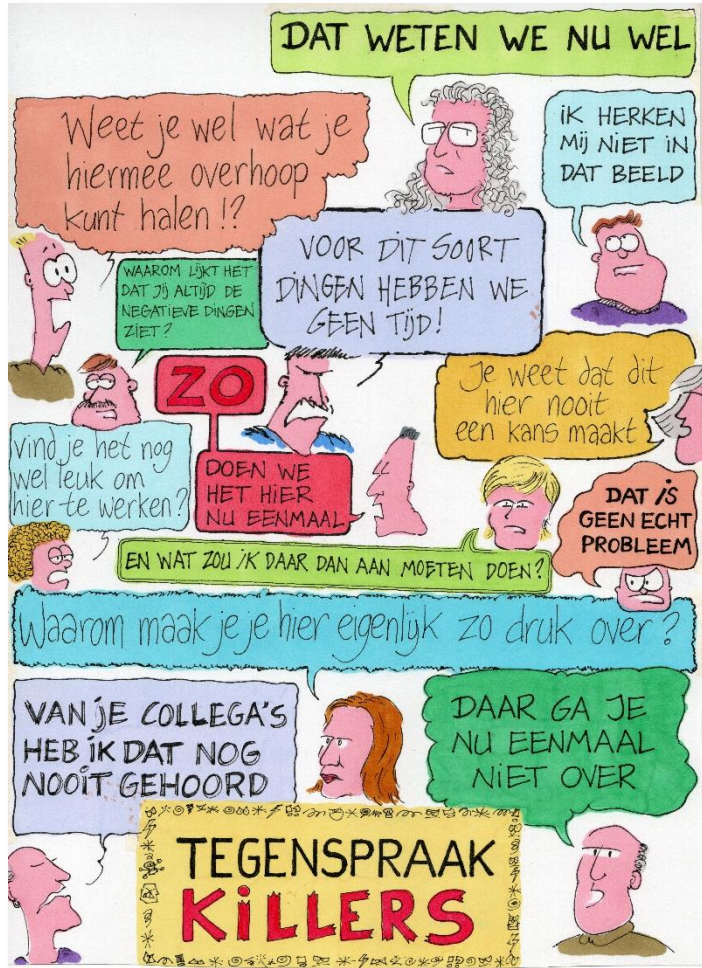 DAT WETEN WE NU WEL
Weet je wel wat je
hiermee overhoop
kunt halen!?
iK HERKEN
Mij NiET iN
DAT BEELD
VOOR DiT SOORT
DiNGEN HEBBEN WE
GEEN TijD!
WAAROM LijKT HET
DAT Jij ALTijD DE
NEGATiEVE DiNGEN
ZiET?
Je weet dat dit
hier nooit
een kans maakt
ZO
DOEN WE
HET HiER
NU EENMAAL
vind je het nog
wel leuk om
hier te werken?
DAT iS
GEEN ECHT
PROBLEEM
EN WAT ZOU iK DAAR DAN AAN MOETEN DOEN?
Waarom maak je je hier eigenlijk zo druk over?
VAN jE COLLEGA'S
HEB iK DAT NOG
NOOiT GEHOORD
DAAR GA JE
NU EENMAAL
NiET OVER
TEGENSPRAAK
KiLLERS